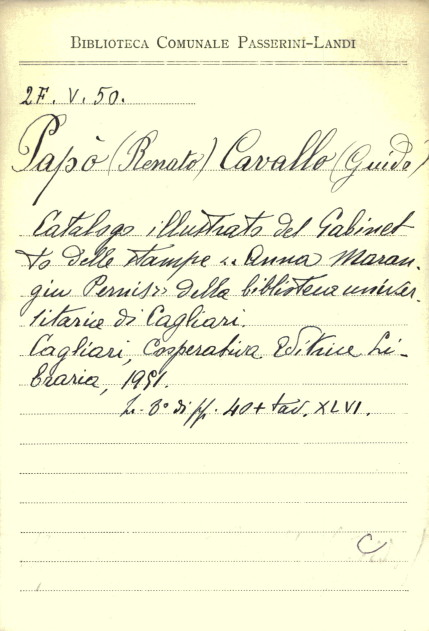 BIBLIOTECA COMUNALE PASSERINI-LANDI
2F. V. 50.
Papò (Renato) Cavallo (Guido)
Catalogo illustrato del Gabinet
to delle stampe «Anna Maron-
giu Pernis» della biblioteca univer
sitaria di Cagliari.
Cagliari, Cooperativa Editrice Li-
braria, 1951.
In 8° di pp. 40 + tav. XLVI.
C